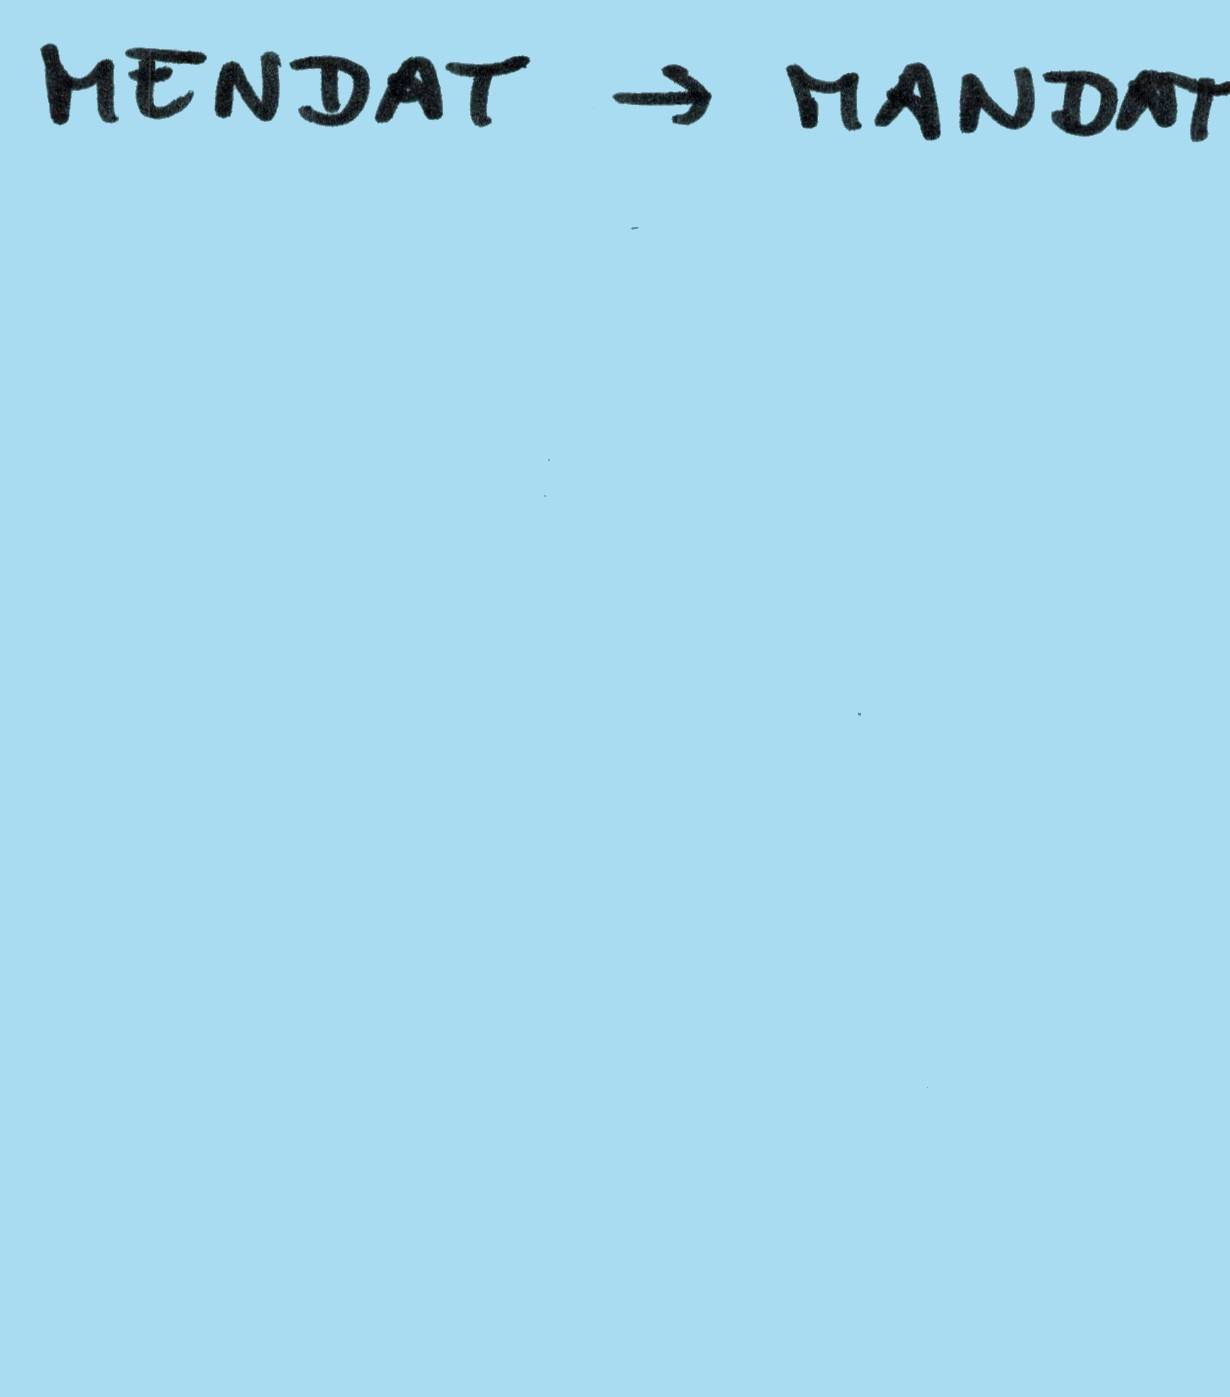 MENDAT → MANDAT